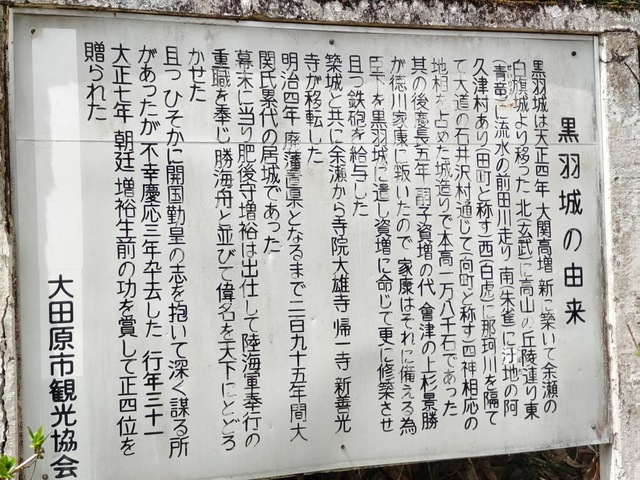 黒羽城の由来
黒羽城は天正四年 大関高増 新に築いて余瀬の
白旗城より移った 北(玄武)に高山の丘陵連り東
(青竜)に流水の前田川走り 南(朱雀)に汙地の阿
久津村あり(田町と称す)西(白虎)に那珂川を隔て
て大道の石井沢村通じて(向町と称す)四神相応の
地相を占めた城造りで本高一万八千石であった
其の後慶長五年 嗣子資増の代 會津の上杉景勝
が徳川家康に叛いたので 家康はそれに備える為
臣下を黒羽城に遣し資増に命じて更に修築させ
且つ鉄砲を給与した
築城と共に余瀬から寺院大雄寺 帰一寺 新善光
寺が移転した
明治四年 廃藩置県となるまで二百九十五年間大
関氏累代の居城であった
幕末に当り肥後守増裕は出仕して陸海軍奉行の
重職を奉じ 勝海舟と並びて偉名を天下にとどろ
かせた
且つ ひそかに開国勤皇の志を抱いて深く謀る所
があったが 不幸慶応三年卒去した 行年三十一
大正七年 朝廷 増裕生前の功を賞して正四位を
贈られた
大田原市観光協会